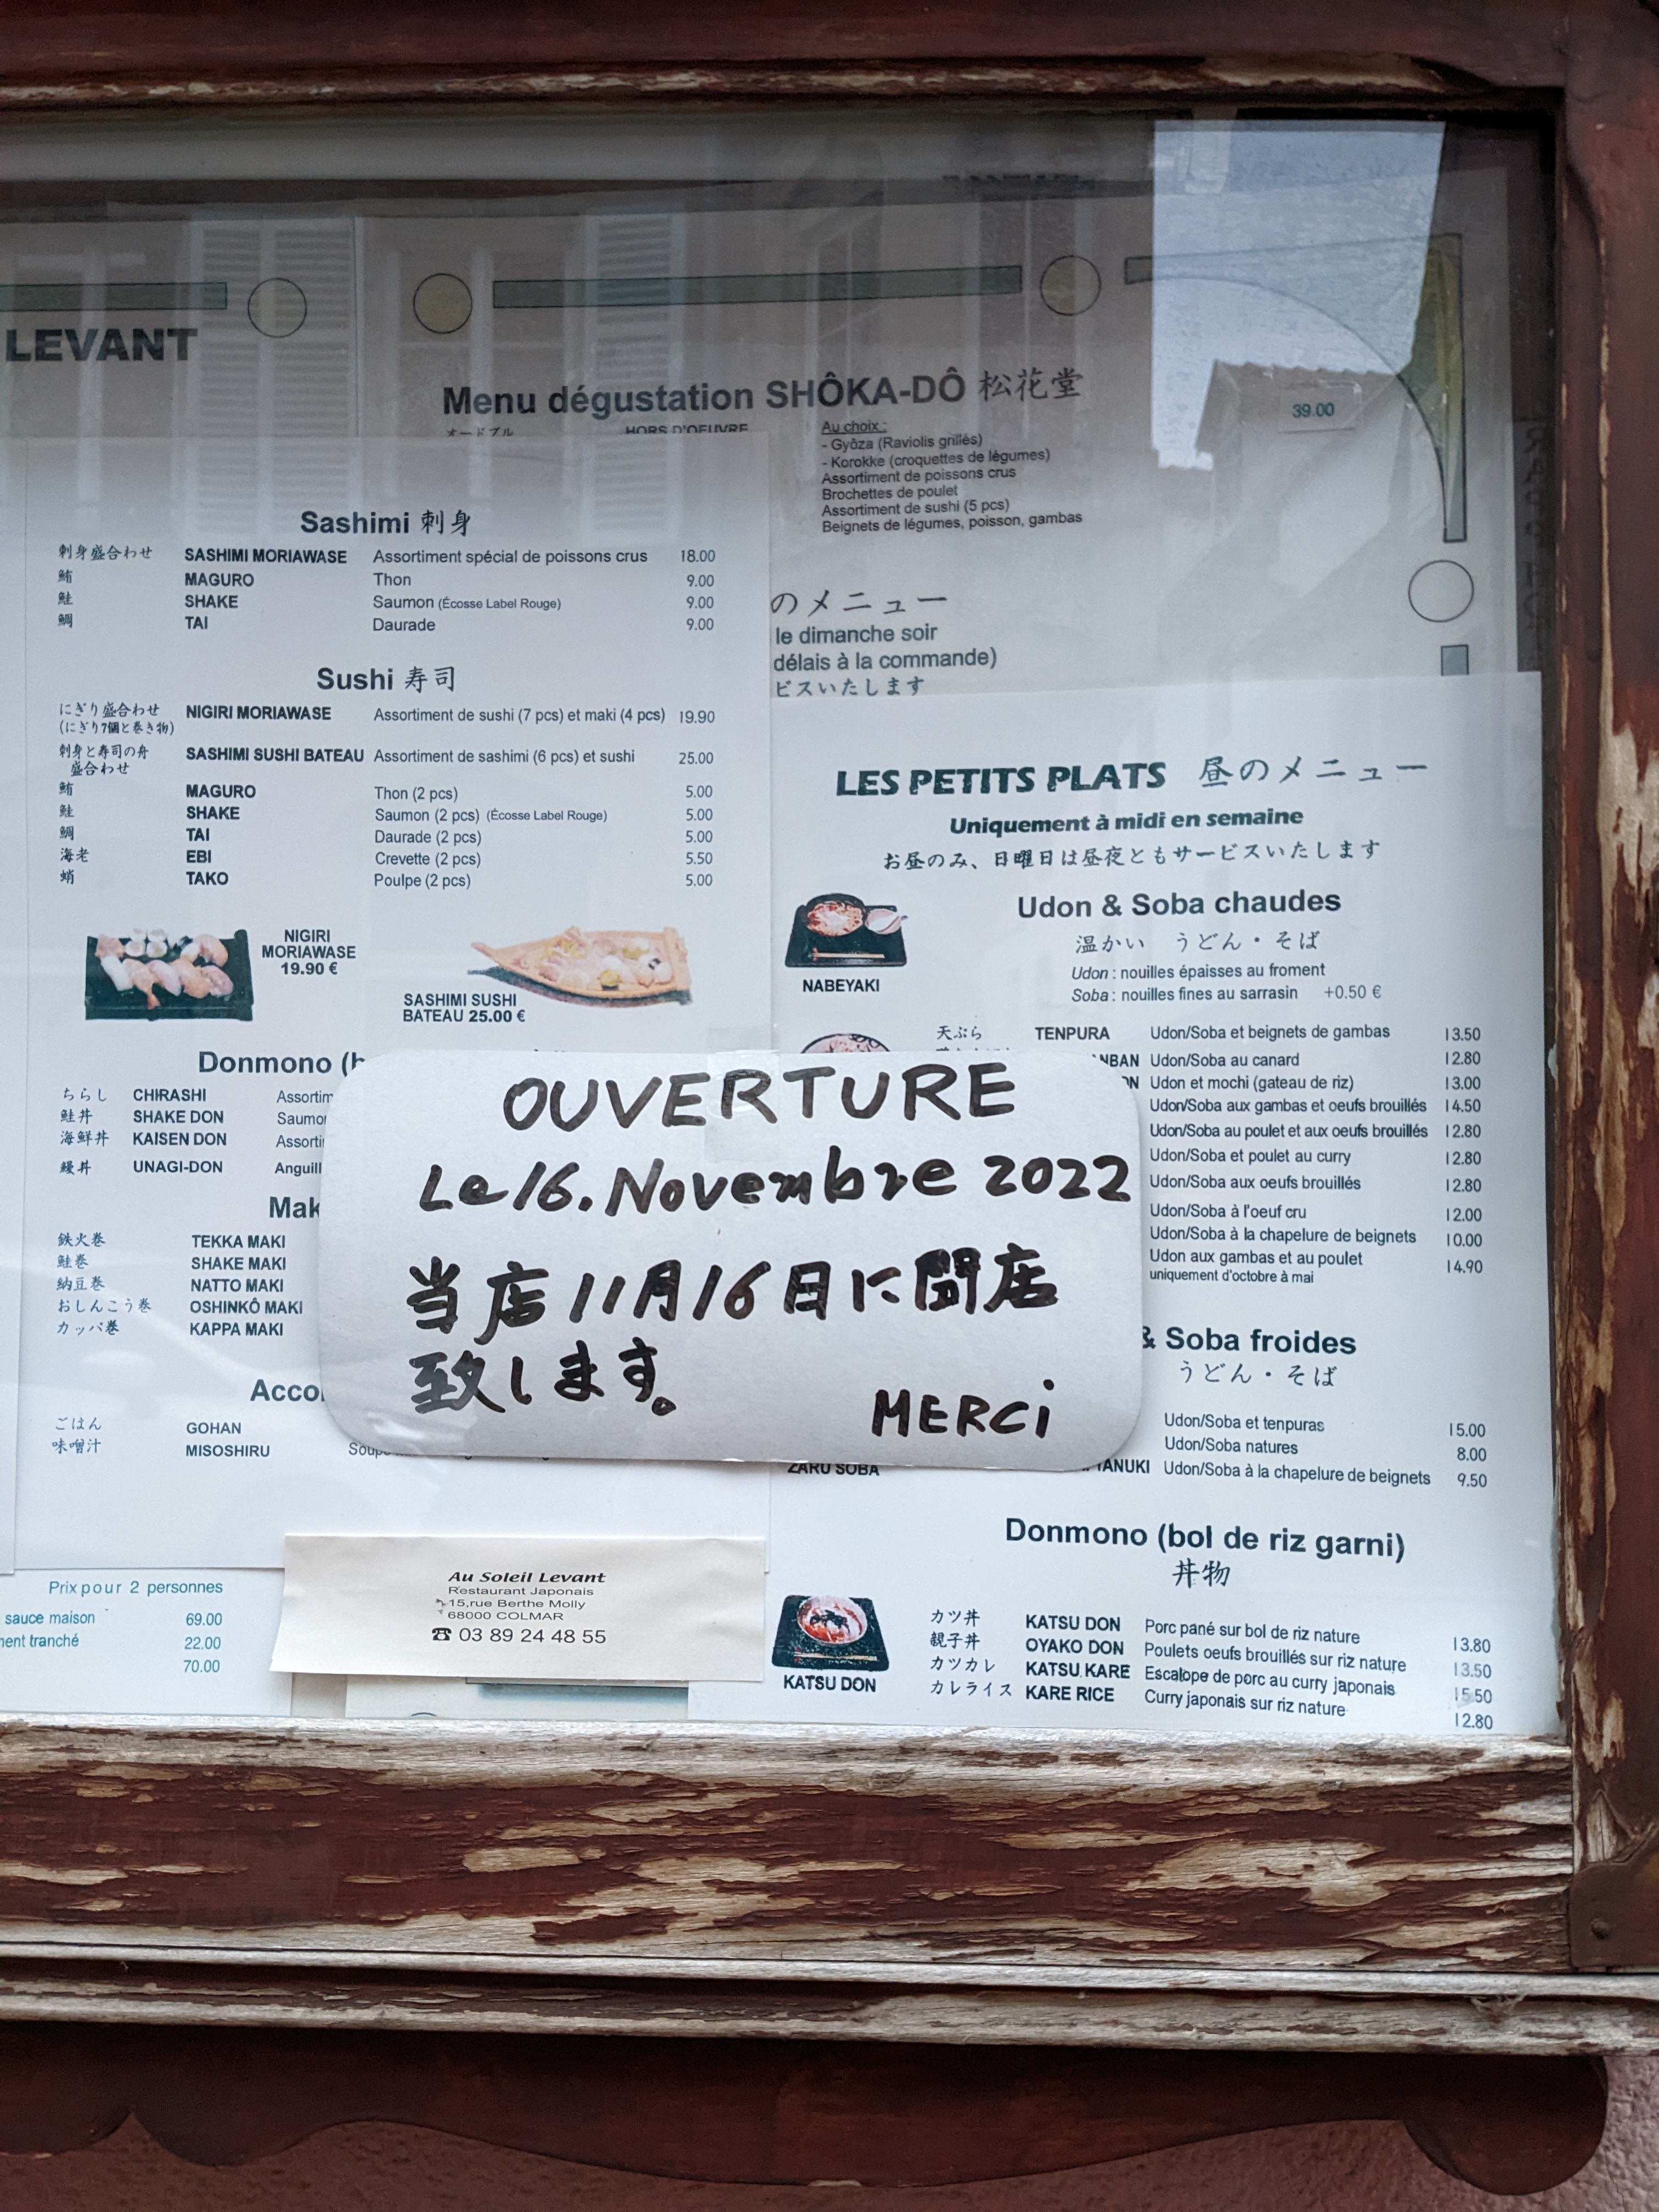 LEVANT
Menu dégustation SHÔKA-DÔ 松花堂
39.00
オードブル HORS D'OEUVRE
Au choix :
- Gyôza (Raviolis grillés)
- Korokke (croquettes de légumes)
Assortiment de poissons crus
Brochettes de poulet
Assortiment de sushi (5 pcs)
Beignets de légumes, poisson, gambas
のメニュー
le dimanche soir
délais à la commande)
ビスいたします
Sashimi 刺身
刺身盛合わせ SASHIMI MORIAWASE Assortiment spécial de poissons crus 18.00
鮪 MAGURO Thon 9.00
鮭 SHAKE Saumon (Écosse Label Rouge) 9.00
鯛 TAI Daurade 9.00
Sushi 寿司
にぎり盛合わせ NIGIRI MORIAWASE Assortiment de sushi (7 pcs) et maki (4 pcs) 19.90
(にぎり7個と巻き物)
刺身と寿司の舟 SASHIMI SUSHI BATEAU Assortiment de sashimi (6 pcs) et sushi 25.00
盛合わせ
鮪 MAGURO Thon (2 pcs) 5.00
鮭 SHAKE Saumon (2 pcs) (Écosse Label Rouge) 5.00
鯛 TAI Daurade (2 pcs) 5.00
海老 EBI Crevette (2 pcs) 5.50
蛸 TAKO Poulpe (2 pcs) 5.00
NIGIRI
MORIAWASE
19.90 €
SASHIMI SUSHI
BATEAU 25.00 €
Donmono (b
ちらし CHIRASHI Assortim
鮭丼 SHAKE DON Saumo
海鮮丼 KAISEN DON Assorti
鰻丼 UNAGI-DON Anguill
Mak
鉄火巻 TEKKA MAKI
鮭巻 SHAKE MAKI
納豆巻 NATTO MAKI
おしんこう巻 OSHINKÔ MAKI
カッパ巻 KAPPA MAKI
Acco
ごはん GOHAN
味噌汁 MISOSHIRU Soupe
LES PETITS PLATS 昼のメニュー
Uniquement à midi en semaine
お昼のみ、日曜日は昼夜ともサービスいたします
Udon & Soba chaudes
温かい うどん・そば
Udon : nouilles épaisses au froment
Soba : nouilles fines au sarrasin +0.50 €
NABEYAKI
天ぷら TENPURA Udon/Soba et beignets de gambas 13.50
NBAN Udon/Soba au canard 12.80
ON Udon et mochi (gateau de riz) 13.00
Udon/Soba aux gambas et oeufs brouillés 14.50
Udon/Soba au poulet et aux oeufs brouillés 12.80
Udon/Soba et poulet au curry 12.80
Udon/Soba aux oeufs brouillés 12.80
Udon/Soba à l'oeuf cru 12.00
Udon/Soba à la chapelure de beignets 10.00
Udon aux gambas et au poulet 14.90
uniquement d'octobre à mai
& Soba froides
うどん・そば
Udon/Soba et tenpuras 15.00
Udon/Soba natures 8.00
ZARU SOBA TANUKI Udon/Soba à la chapelure de beignets 9.50
Donmono (bol de riz garni)
丼物
KATSU DON
カツ丼 KATSU DON Porc pané sur bol de riz nature 13.80
親子丼 OYAKO DON Poulets oeufs brouillés sur riz nature 13.50
カツカレ KATSU KARE Escalope de porc au curry japonais 15.50
カレライス KARE RICE Curry japonais sur riz nature 12.80
OUVERTURE
Le 16. Novembre 2022
当店11月16日に開店
致します。
MERCi
Prix pour 2 personnes
sauce maison 69.00
nent tranché 22.00
70.00
Au Soleil Levant
Restaurant Japonais
15,rue Berthe Molly
68000 COLMAR
☎ 03 89 24 48 55